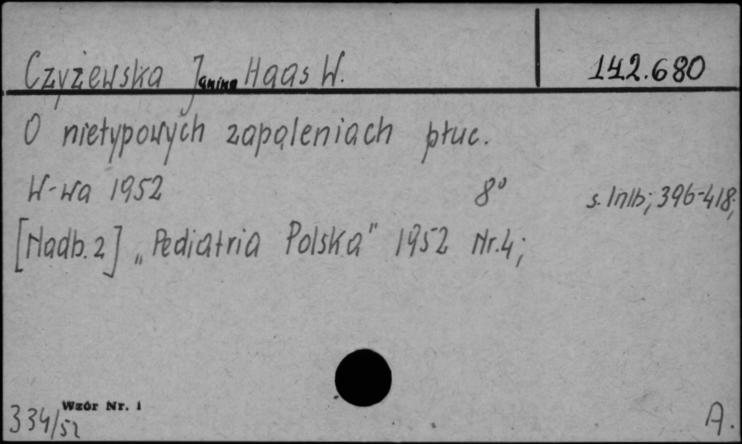 Czyżewska Janina Haas W. 142.680
O nietypowych zapaleniach płuc.
W-wa 1952 8° s. 1nlb; 396-418;
[Nadb. z] „Pediatria Polska" 1952 Nr. 4;
Wzór Nr. 1
334/52 A.